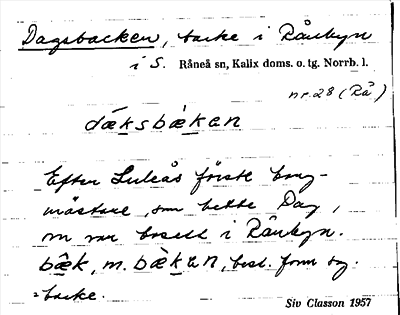 Dagsbacken, backe i Rånbyn
i S. Råneå sn, Kalix doms. o. tg. Norrb. l.
nr. 28 (Rå)
dáksbàkan
Efter Luleås förste borg-
mästare, som hette Dag,
om var bosatt i Rånbyn.
bæ̂k, m. bæ̀kan, best. form sg.
=backe.
Siv Classon 1957